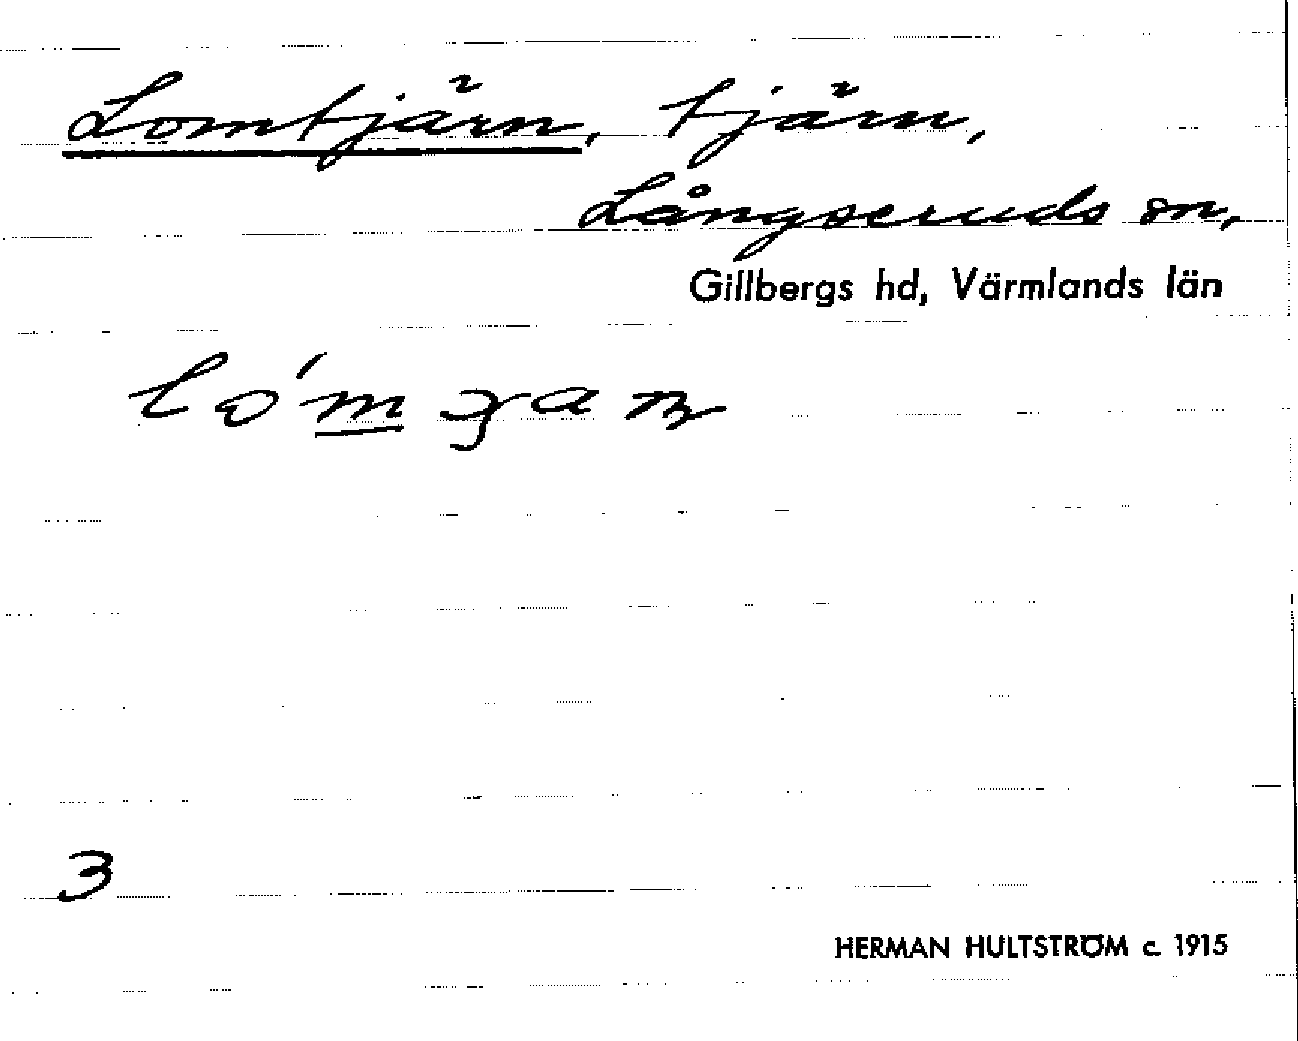 Lomtjärn, tjärn,
Långseruds sn,
Gillbergs hd, Värmlands län
3
HERMAN HULTSTRÖM c. 1915